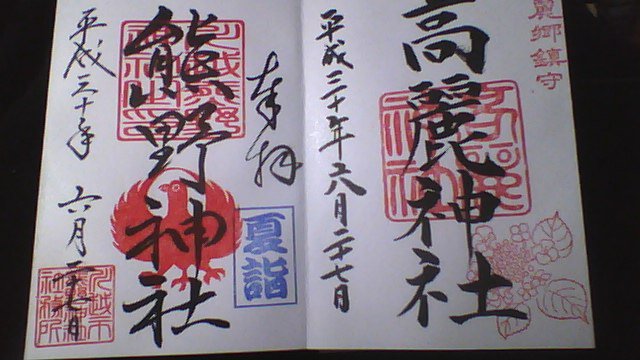 麗郷鎮守
高麗神社
平成三十年六月二十七日
奉拝
夏詣
熊野神社
平成三十年 六月二十七日